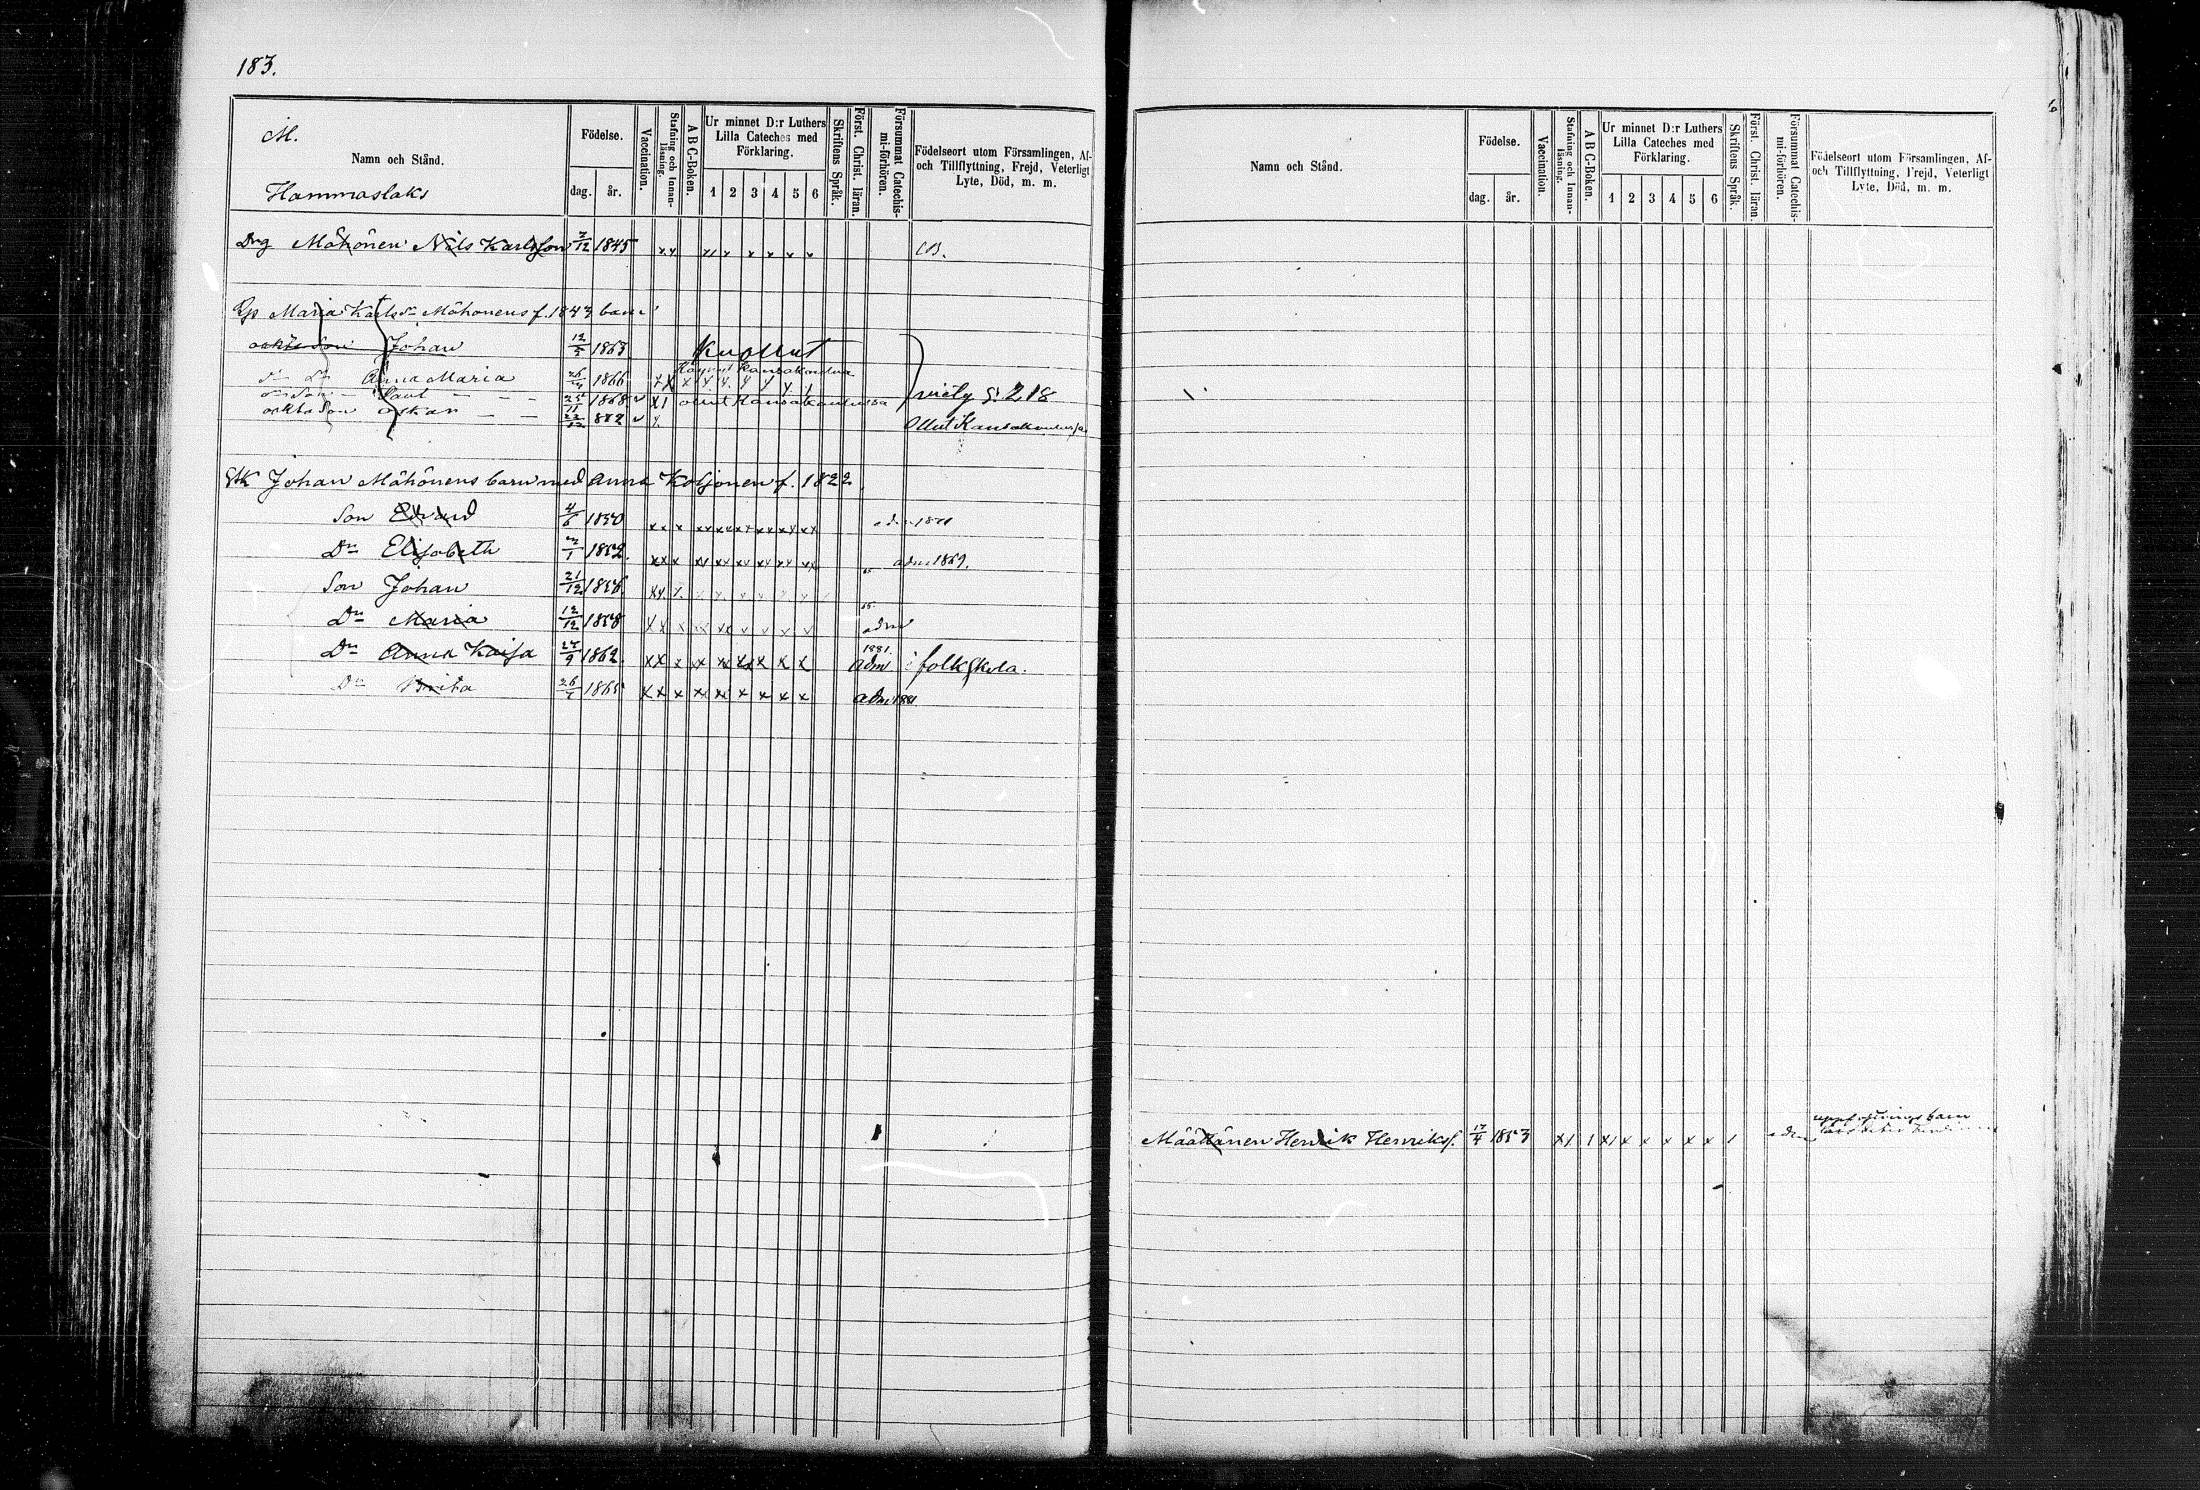 183.
M.
Namn och Stånd.
Hammaslaks
Födelse.
dag. år.
Vaccination.
Stafning och Innanläsning.
A B C-Boken.
Ur minnet D:r Luthers Lilla Cateches med Förklaring.
1 2 3 4 5 6
Skriftens Språk.
Först. Christ. läran.
Försummat Catechismi-förhören.
Födelseort utom Församlingen, Af- och Tillflyttning, Frejd, Veterligt Lyte, Död, m. m.
Drg Möhönen Nils Karlsson 7/12 1845
Maria Karlsdr Möhönens f. 1843 barn
oäkta Son Johan 12/5 1863 Kuollut
Dr Anna Maria 26/4 1866 käynyt kansakoulua
Son Paul 25/11 1868 ollut Kansakoulussa
oäkta Son Oskar 22/12 872 Ollut Kansakoulussa
viety S. 218
Johan Möhönens barn med Anna Koljonen f. 1822
Son Edvard 4/6 1850
Dr Elisabeth 1852. adm 1869.
Son Johan 21/12 1856.
Dr Maria 12/12 1858 adm
Dr Anna Kaisa 25/9 1862. 1881. adm i folkskola.
Dr Brita 1865 adm 1881
Namn och Stånd.
Födelse.
dag. år.
Vaccination.
Stafning och Innanläsning.
A B C-Boken.
Ur minnet D:r Luthers Lilla Cateches med Förklaring.
1 2 3 4 5 6
Skriftens Språk.
Först. Christ. läran.
Försummat Catechismi-förhören.
Födelseort utom Församlingen, Af- och Tillflyttning, Frejd, Veterligt Lyte, Död, m. m.
uppfostringsbarn
Määttänen Henrik Henriksf. 17/4 1853 adm